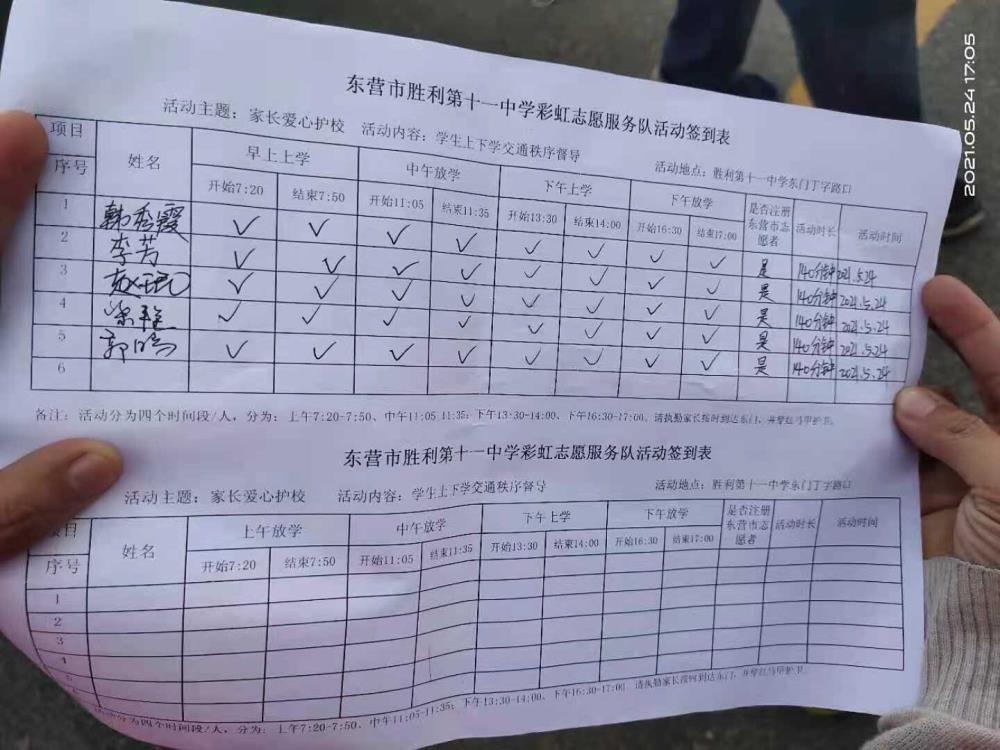 2021.05.24 17:05
东营市胜利第十一中学彩虹志愿服务队活动签到表
活动主题：家长爱心护校 活动内容：学生上下学交通秩序督导 活动地点：胜利第十一中学东门丁字路口
项目 序号 姓名 早上上学 中午放学 下午上学 下午放学 是否注册东营市志愿者 活动时长 活动时间
开始7:20 结束7:50 开始11:05 结束11:35 开始13:30 结束14:00 开始16:30 结束17:00
1 韩秀霞 ✓ ✓ ✓ ✓ ✓ ✓ ✓ ✓ 是 140分钟 2021.5.24
2 李芳 ✓ ✓ ✓ ✓ ✓ ✓ ✓ ✓ 是 140分钟 2021.5.24
3 ✓ ✓ ✓ ✓ ✓ ✓ ✓ ✓ 是 140分钟 2021.5.24
4 ✓ ✓ ✓ ✓ ✓ ✓ ✓ ✓ 是 140分钟 2021.5.24
5 ✓ ✓ ✓ ✓ ✓ ✓ ✓ ✓ 是 140分钟 2021.5.24
6
备注：活动分为四个时间段/人，分为：上午7:20-7:50、中午11:05-11:35；下午13:30-14:00、下午16:30-17:00。请执勤家长按时到达东门，并穿红马甲护卫。
东营市胜利第十一中学彩虹志愿服务队活动签到表
活动主题：家长爱心护校 活动内容：学生上下学交通秩序督导 活动地点：胜利第十一中学东门丁字路口
项目 序号 姓名 上午放学 中午放学 下午上学 下午放学 是否注册东营市志愿者 活动时长 活动时间
开始7:20 结束7:50 开始11:05 结束11:35 开始13:30 结束14:00 开始16:30 结束17:00
1
2
3
4
5
动分为四个时间段/人，分为：上午7:20-7:50、中午11:05-11:35；下午13:30-14:00、下午16:30-17:00 请执勤家长按时到达东门，并穿红马甲护卫。